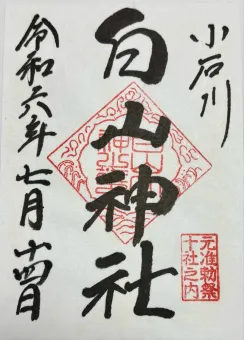 小石川
白山神社
元准勅祭
十社之内
令和六年七月十四日